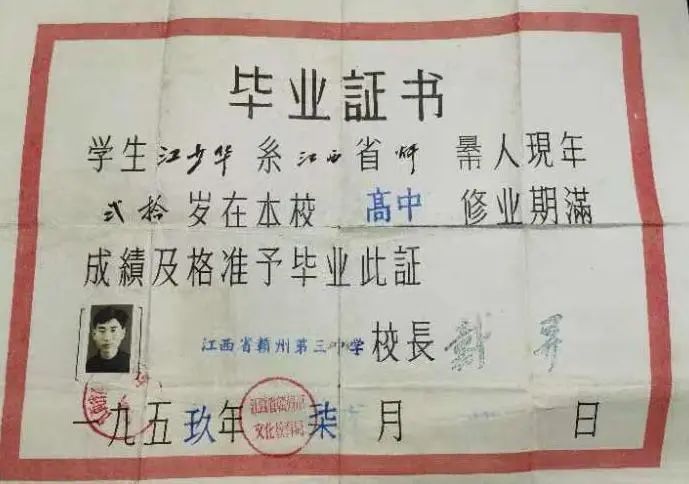 毕业証书
学生江少华系江西省 人現年
弍拾岁在本校 高中 修业期滿
成績及格准予毕业此証
江西省贑州第三中学 校長 戴
一九五玖年柒月 日